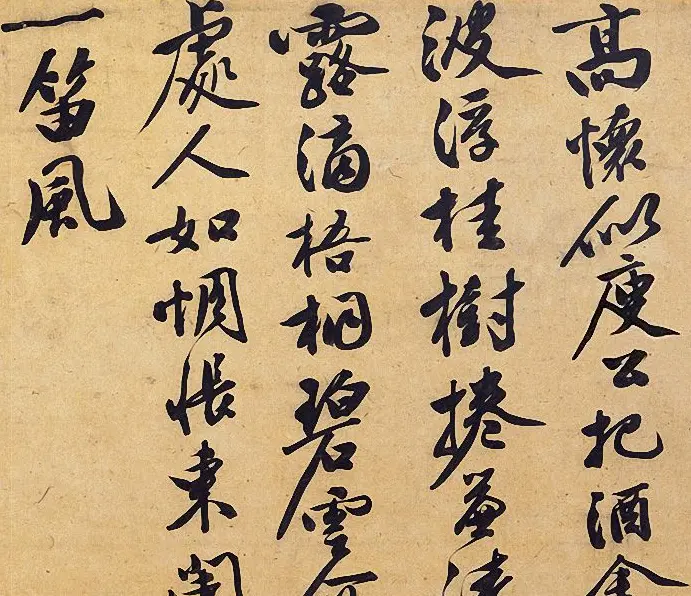 高懷似庾公把酒金
波浮桂樹捲簾清
露滴梧桐碧雲
處人如惆悵東
一笛風